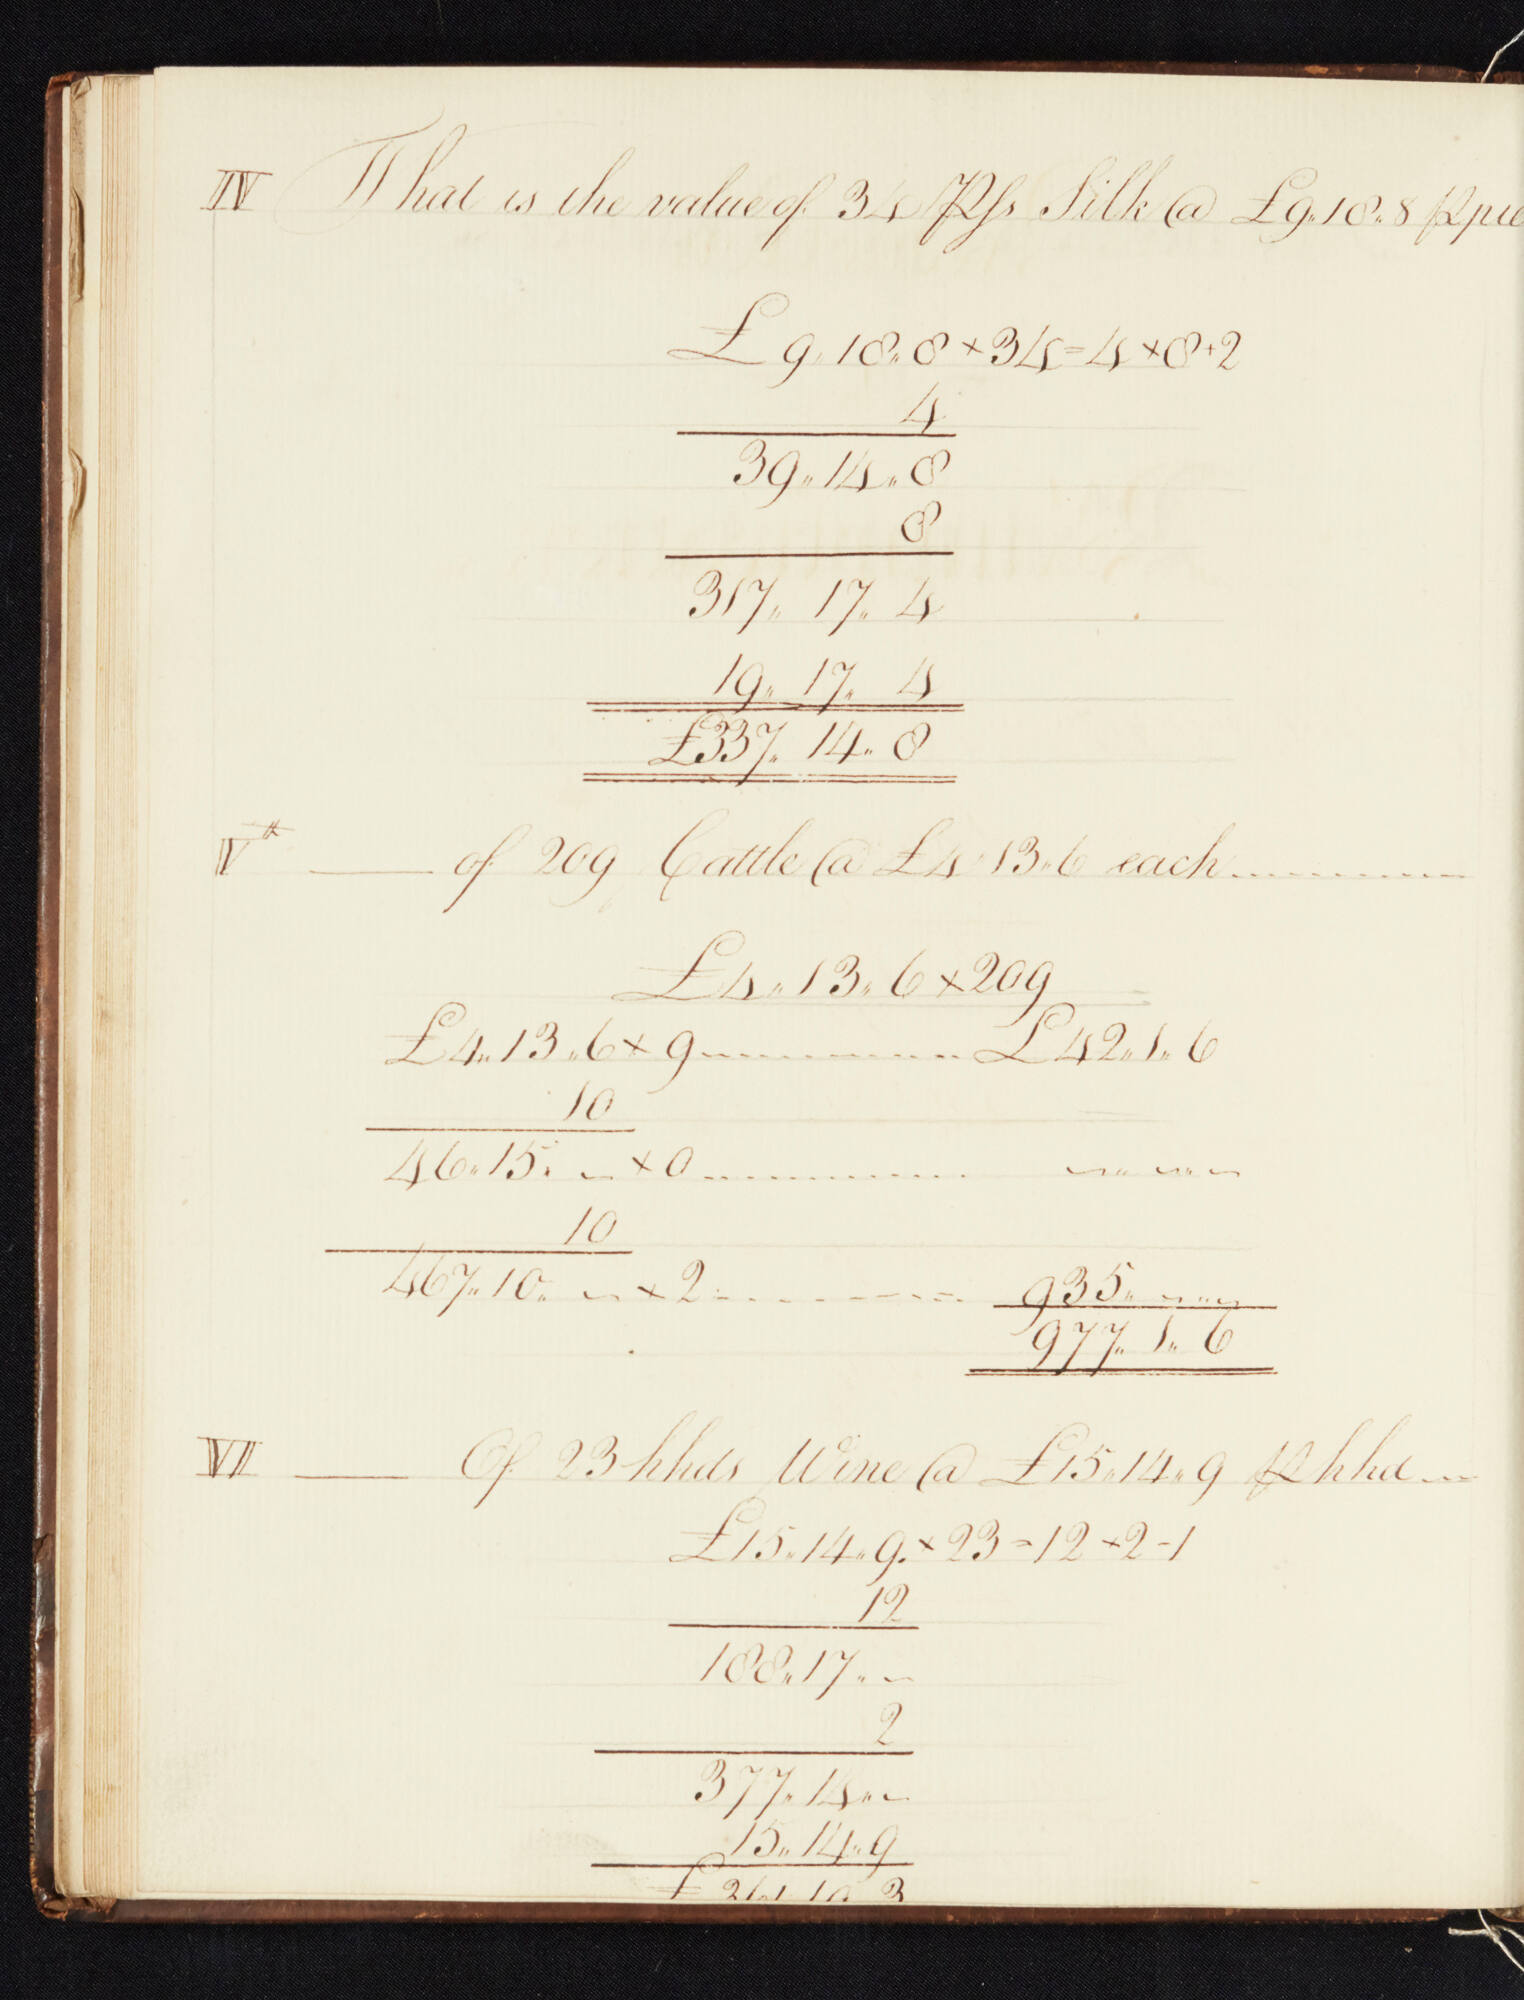 IV What is the value of 34 Ps Silk @ £9..18..8 ⅌ pie
£9..18..8 × 34 = 4 × 8 + 2
4
39..14..8
8
317..17..4
19..17..4
£337..14..8
Vth —— of 209 Cattle @ £4..13..6 each
£4..13..6 × 209
£4..13..6 × 9 £42..1..6
10
46..15..~ × 0 ~..~..~
10
467..10..~ × 2 935..~..~
977..1..6
VI —— Of 23 hhds Wine @ £15..14..9 ⅌ hhd
£15..14..9 × 23 = 12 × 2 - 1
12
188..17..~
2
377..14..~
15..14..9
£361 19 3